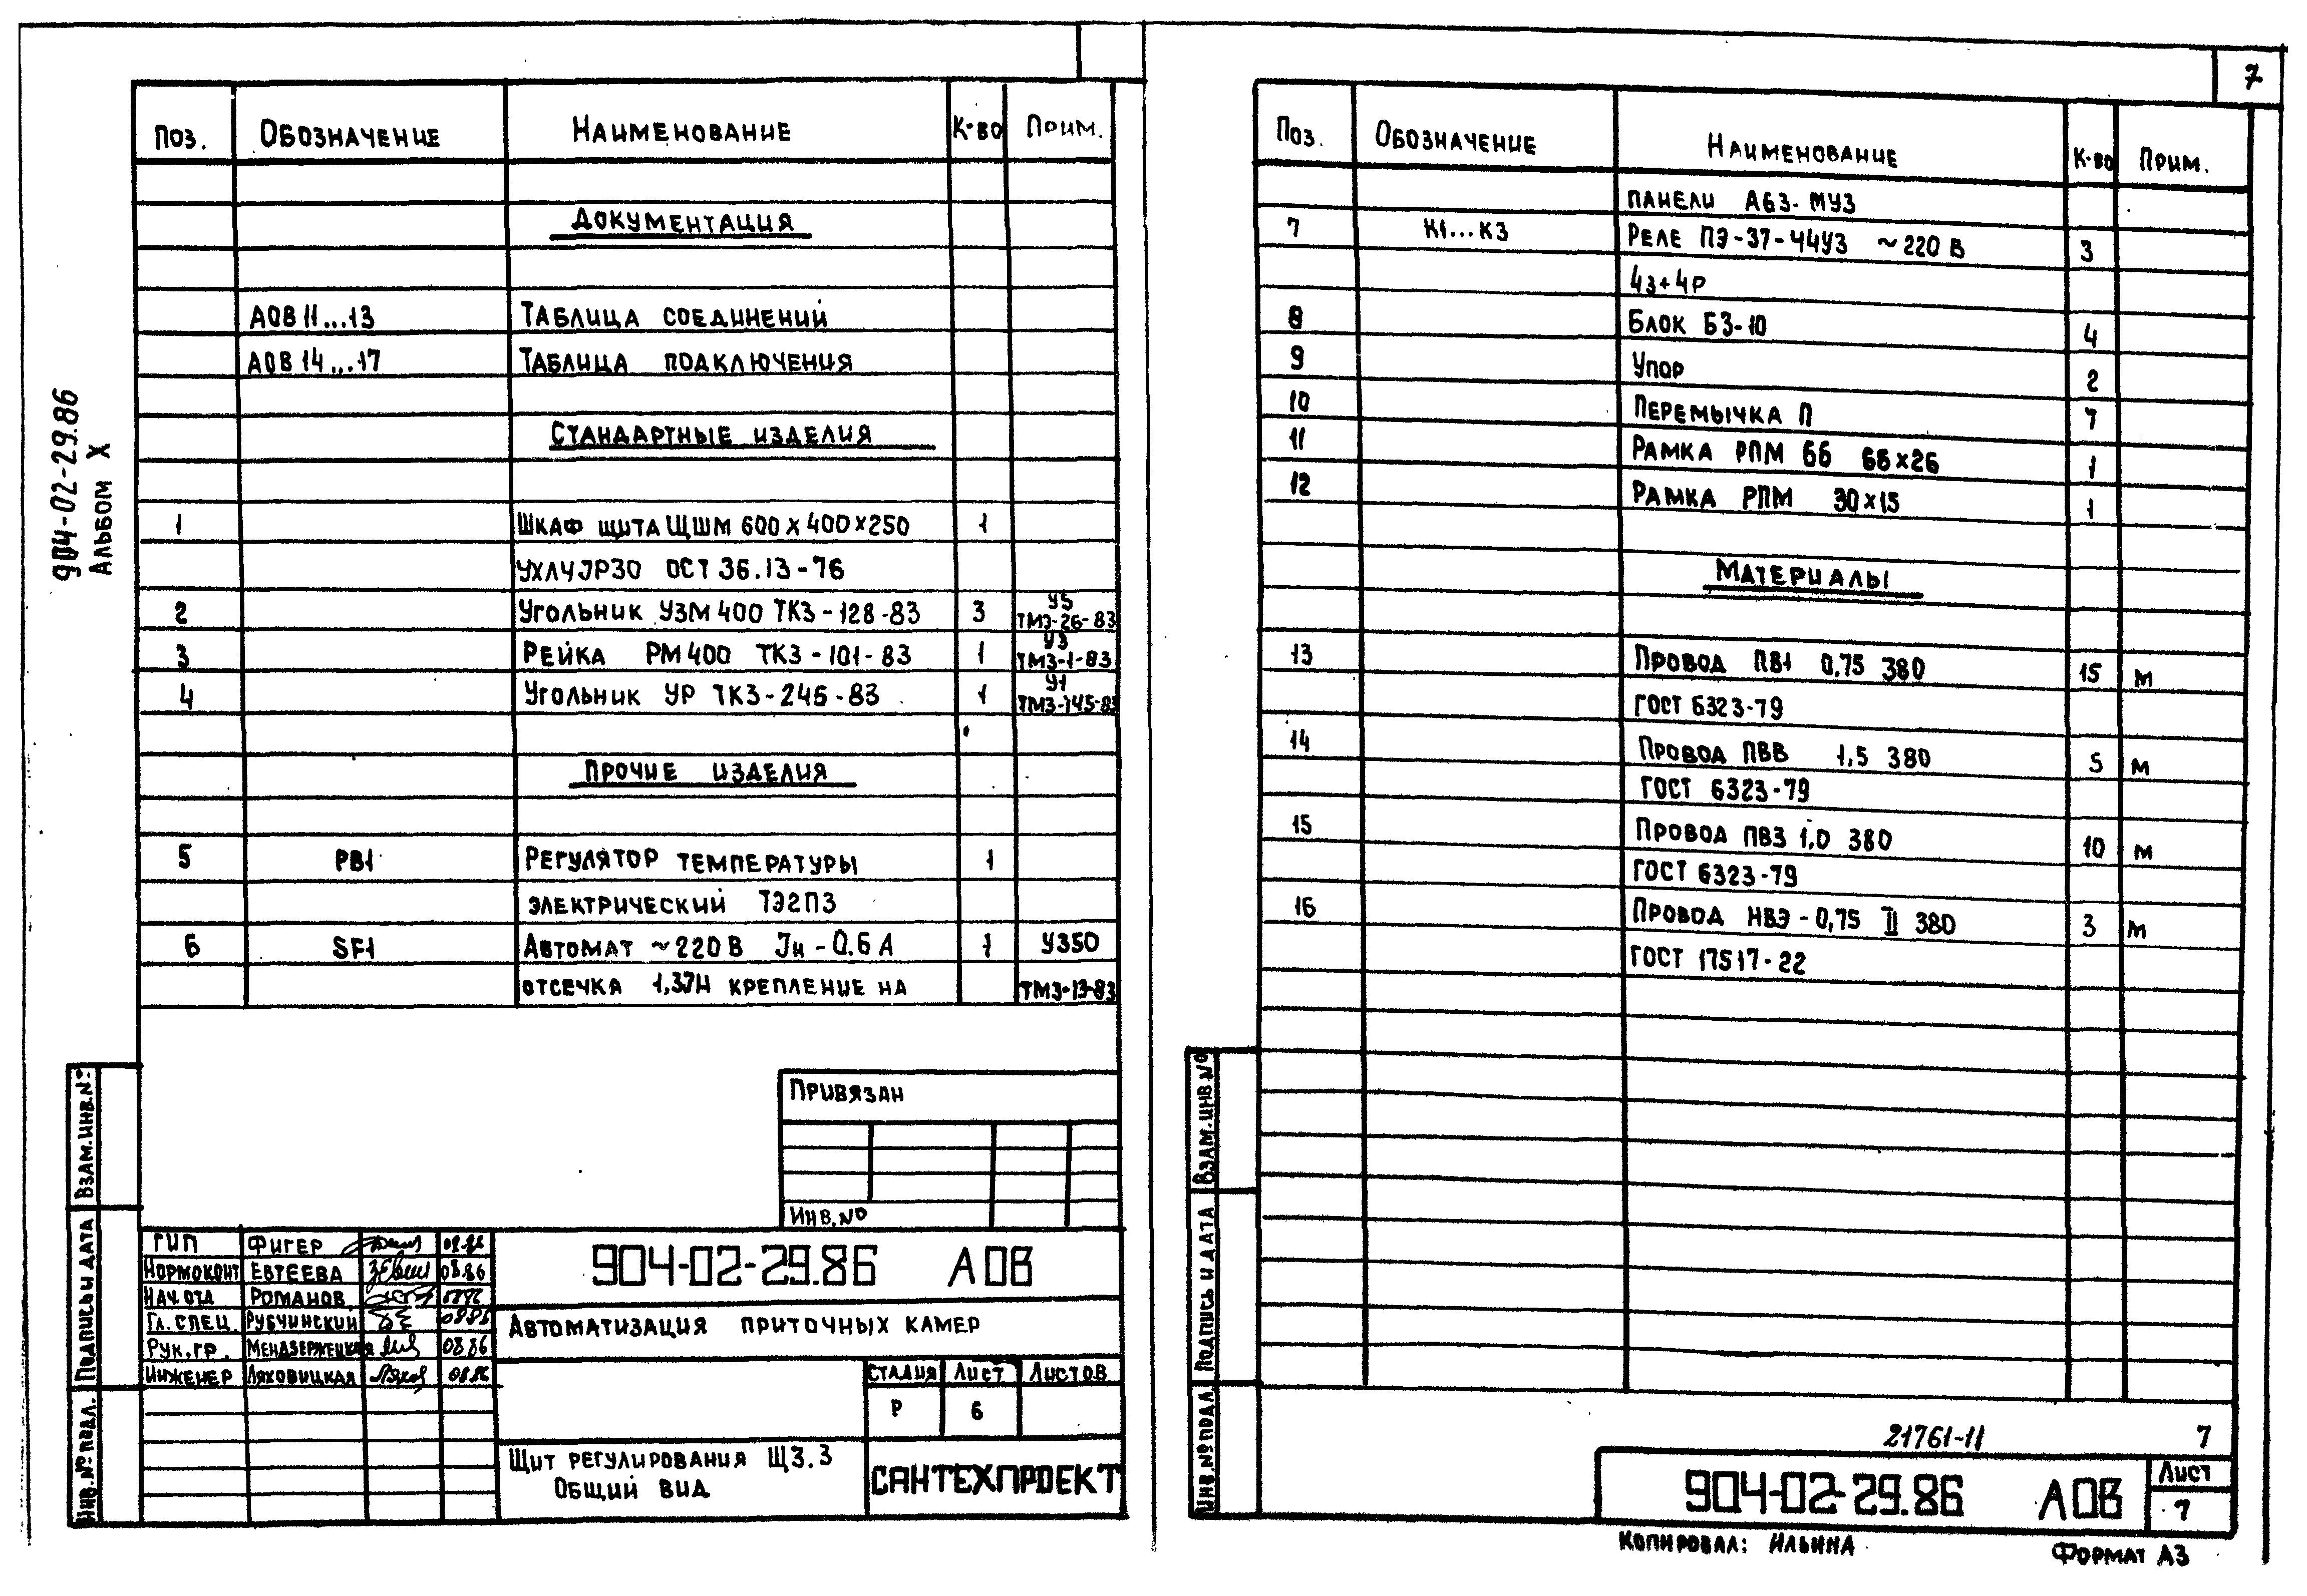 904-02-29.86
Альбом X
Поз. Обозначение Наименование К-во Прим.
Документация
АОВ 11...13 Таблица соединений
АОВ 14...17 Таблица подключения
Стандартные изделия
1 Шкаф щита ЩШМ 600х400х250 1
УХЛЧ JP30 ОСТ 36.13-76
2 Угольник УЗМ 400 ТКЗ-128-83 3 У5 ТМЗ-26-83
3 Рейка РМ400 ТКЗ-101-83 1 У3 ТМЗ-1-83
4 Угольник УР ТКЗ-245-83 1 У1 ТМЗ-145-83
Прочие изделия
5 РВ1 Регулятор температуры 1
электрический ТЭ2ПЗ
6 SF1 Автомат ~220 В Jн-0.6 А 1 У350
отсечка 1,3JН крепление на ТМЗ-13-83
Привязан
Инв.№
Взам.инв.№
Подпись и дата
Инв.№ подл.
ГИП Фигер 08.86
Нормоконт Евтеева 08.86
Нач.отд Романов 08.86
Гл. спец. Рубчинский 08.86
Рук.гр. Мендзержецкая 08.86
Инженер Ляховицкая 08.86
904-02-29.86 АОВ
Автоматизация приточных камер
Стадия Лист Листов
Р 6
Щит регулирования ЩЗ.3
Общий вид
САНТЕХПРОЕКТ
7
Поз. Обозначение Наименование К-во Прим.
панели А63-МУ3
7 К1...К3 Реле ПЭ-37-44У3 ~220 В 3
4з+4р
8 Блок БЗ-10 4
9 Упор 2
10 Перемычка П 7
11 Рамка РПМ 66 66х26 1
12 Рамка РПМ 30х15 1
Материалы
13 Провод ПВ1 0,75 380 15 м
ГОСТ 6323-79
14 Провод ПВВ 1,5 380 5 м
ГОСТ 6323-79
15 Провод ПВЗ 1,0 380 10 м
ГОСТ 6323-79
16 Провод НВЭ-0,75 II 380 3 м
ГОСТ 17517-22
Взам.инв №
Подпись и дата
Инв.№ подл.
21761-11 7
904-02-29.86 АОВ
Лист
7
Копировал: Ильина Формат А3